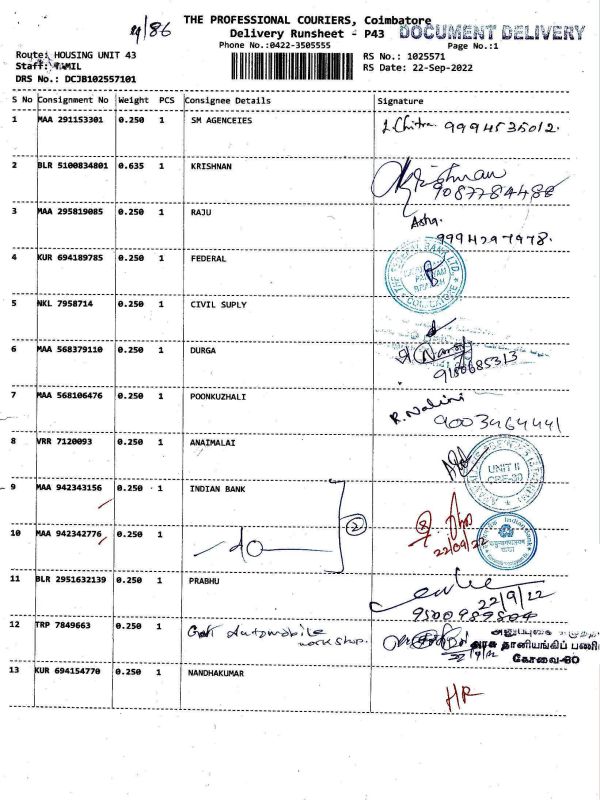 21/86
THE PROFESSIONAL COURIERS, Coimbatore
Delivery Runsheet - P43 DOCUMENT DELIVERY
Phone No.:0422-3505555 Page No.:1
Route: HOUSING UNIT 43 RS No.: 1025571
Staff: TAMIL RS Date: 22-Sep-2022
DRS No.: DCJB102557101
S No Consignment No Weight PCS Consignee Details Signature
1 MAA 291153301 0.250 1 SM AGENCEIES J. Chitra 9994535012.
2 BLR 5100834801 0.635 1 KRISHNAN Krishnan
9087784488
3 MAA 295819085 0.250 1 RAJU Asha.
9994297978.
4 KUR 694189785 0.250 1 FEDERAL THE FEDERAL BANK LTD. COIMBATORE
5 NKL 7958714 0.250 1 CIVIL SUPLY
6 MAA 568379110 0.250 1 DURGA
9180685313
7 MAA 568106476 0.250 1 POONKUZHALI R. Nalini
9003464441
8 VRR 7120093 0.250 1 ANAIMALAI UNIT II
9 MAA 942343156 0.250 1 INDIAN BANK
2
10 MAA 942342776 0.250 1 do 22/09/22 Indian Bank
11 BLR 2951632139 0.250 1 PRABHU 22/9/22
9500989804
12 TRP 7849663 0.250 1 Govt Automobile
workshop.
அரசு தானியங்கிப் பணி
கோவை-60
13 KUR 694154770 0.250 1 NANDHAKUMAR HR